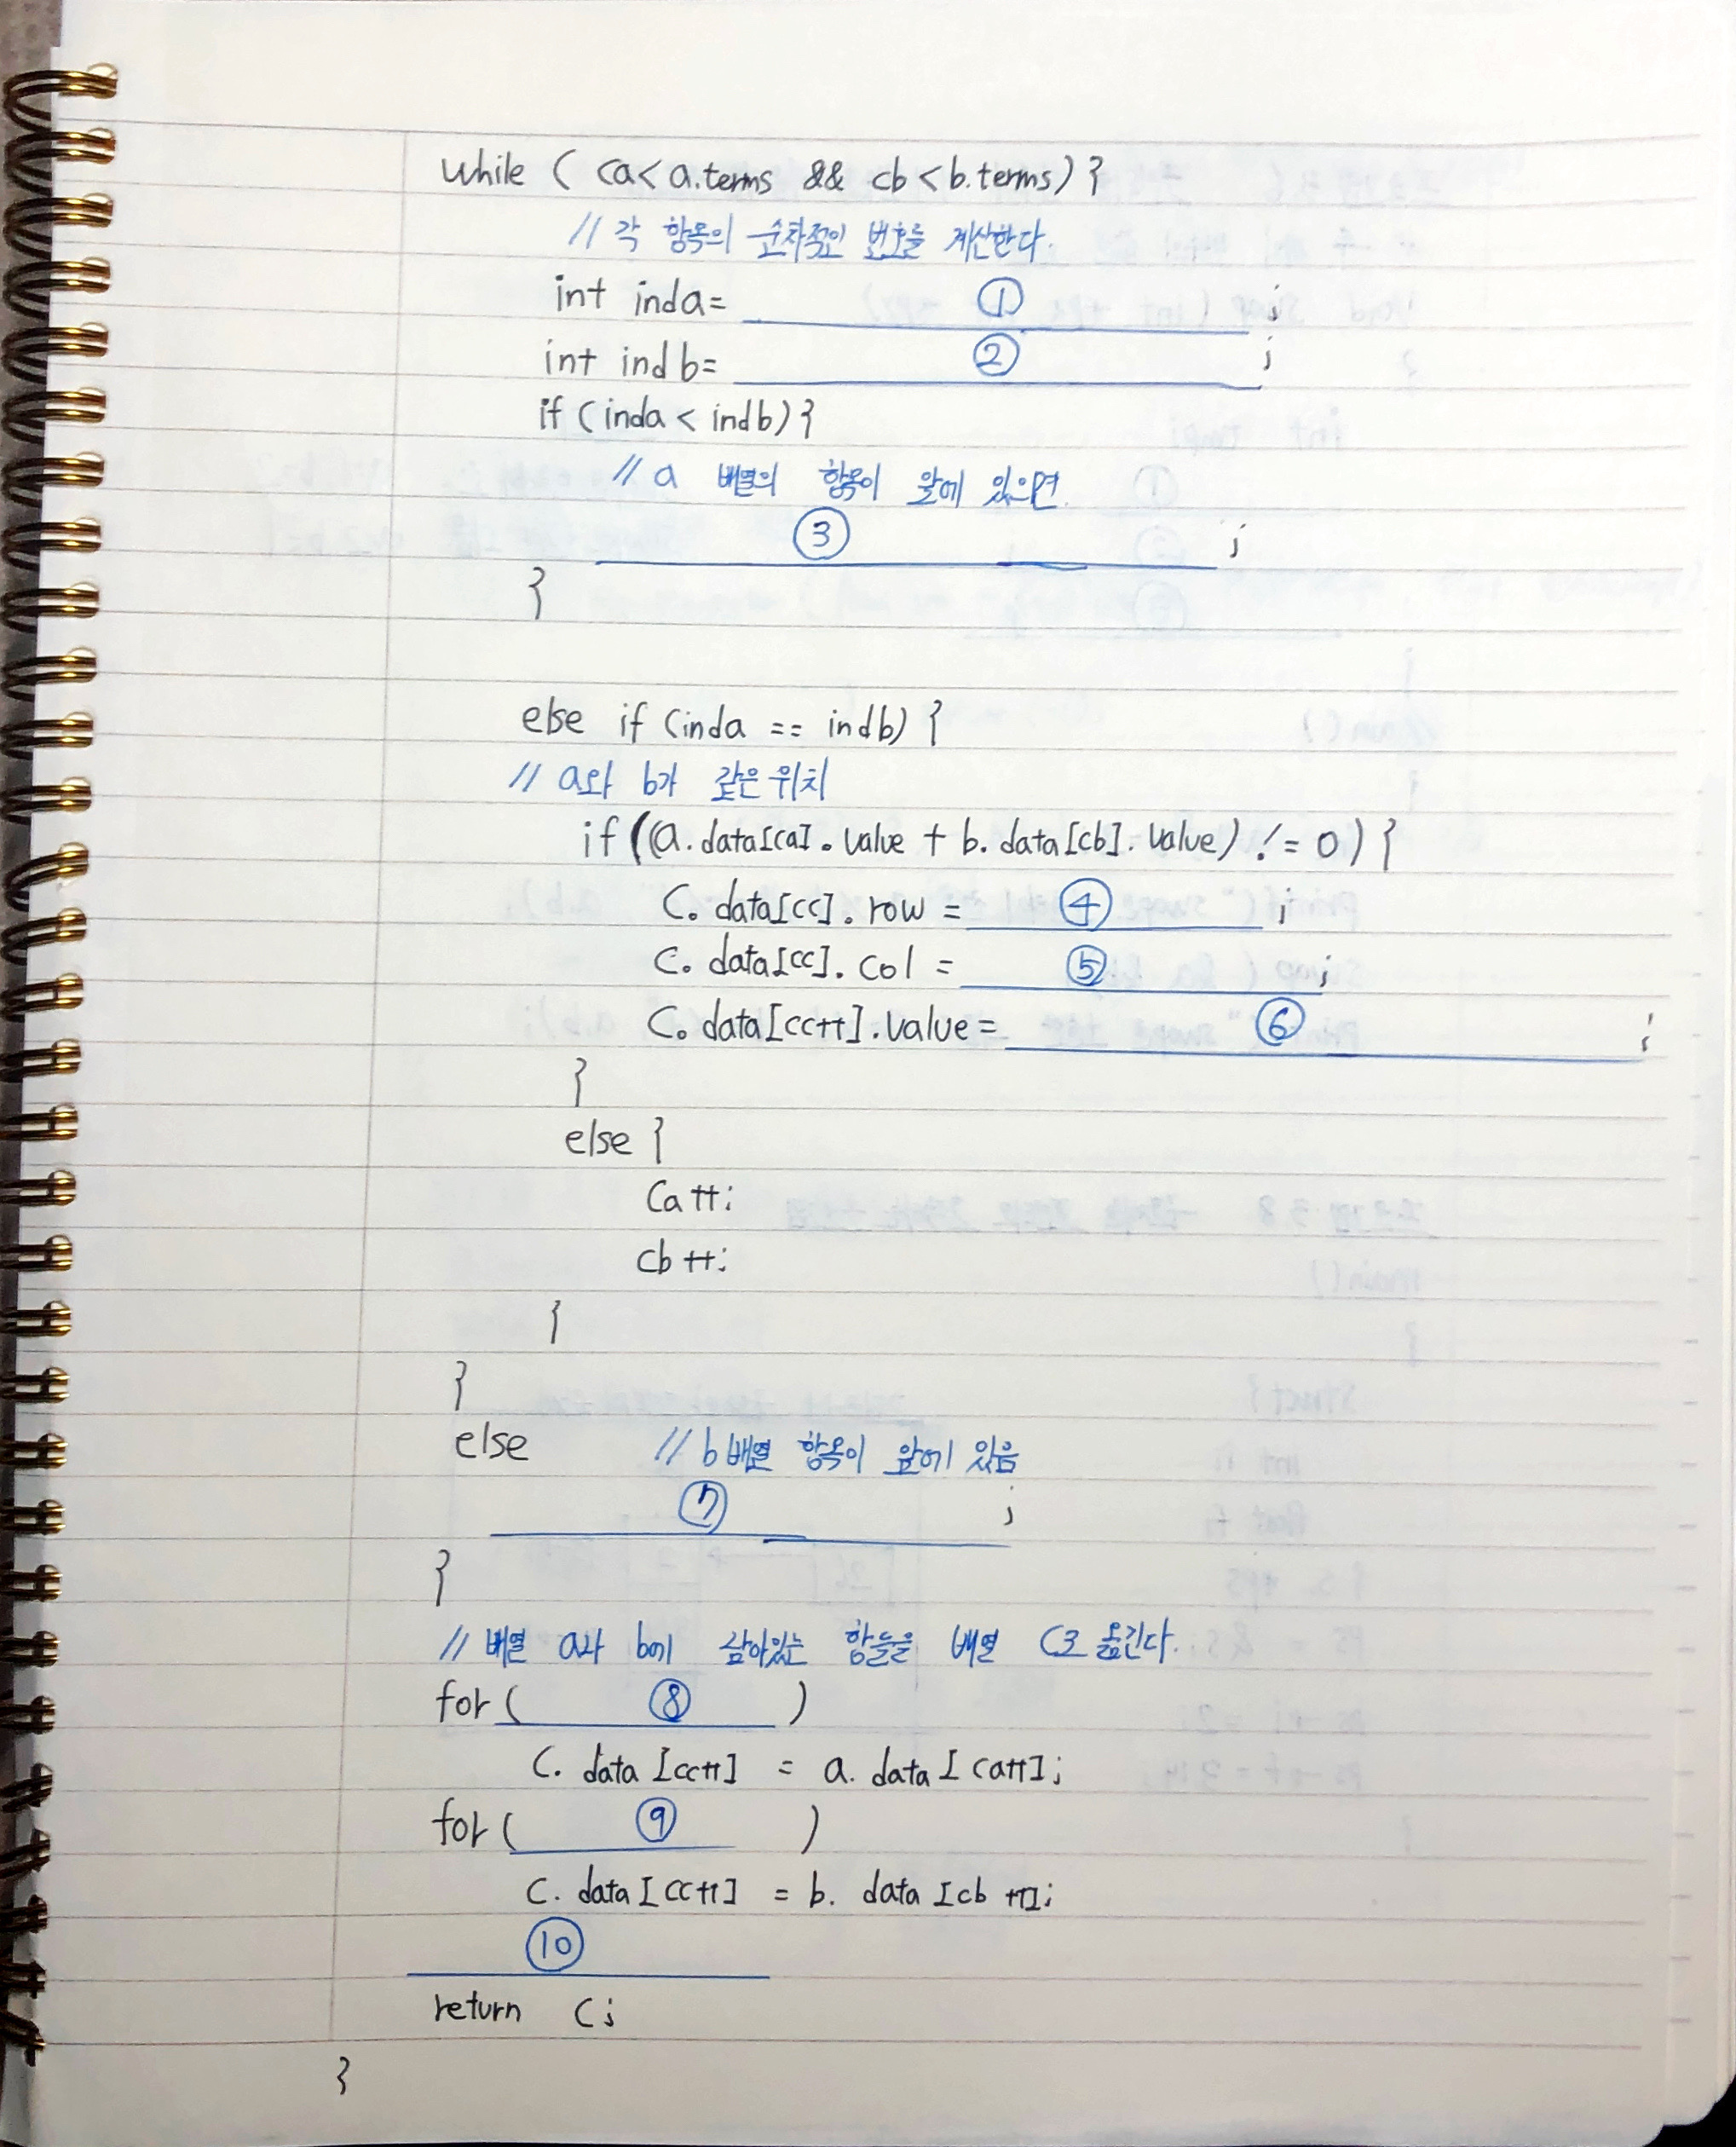 while ( ca<a.terms && cb<b.terms) {
// 각 항목의 순차적인 번호를 계산한다.
int inda= ① ;
int indb= ② ;
if (inda < indb) {
// a 배열의 항목이 앞에 있으면
③ ;
}
else if (inda == indb) {
// a와 b가 같은 위치
if ((a.data[ca].value + b.data[cb].value) != 0) {
C.data[cc].row = ④ ;
C.data[cc].col = ⑤ ;
C.data[cc++].value= ⑥ ;
}
else {
Ca++;
cb++;
}
}
else // b배열 항목이 앞에 있음
⑦ ;
}
// 배열 a와 b에 남아있는 항들을 배열 C로 옮긴다.
for ( ⑧ )
C. data [cc++] = a. data [ca++];
for ( ⑨ )
C. data [cc++] = b. data [cb++];
⑩
return C;
}